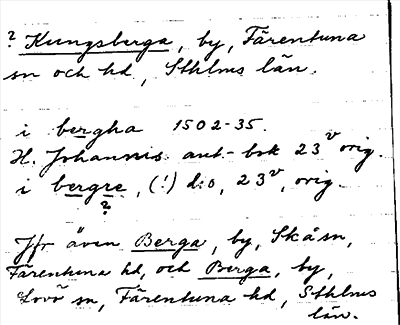 ? Kungsberga, by, Färentuna
sn och hd, Sthlms län.
i bergha 1502-35.
H. Johannis ant.-bok 23v orig.
i bergre, (!) d:o, 23v, orig.
?
Jfr även Berga, by, Skå sn,
Färentuna hd, och Berga, by,
Lovö sn, Färentuna hd, Sthlms
län.